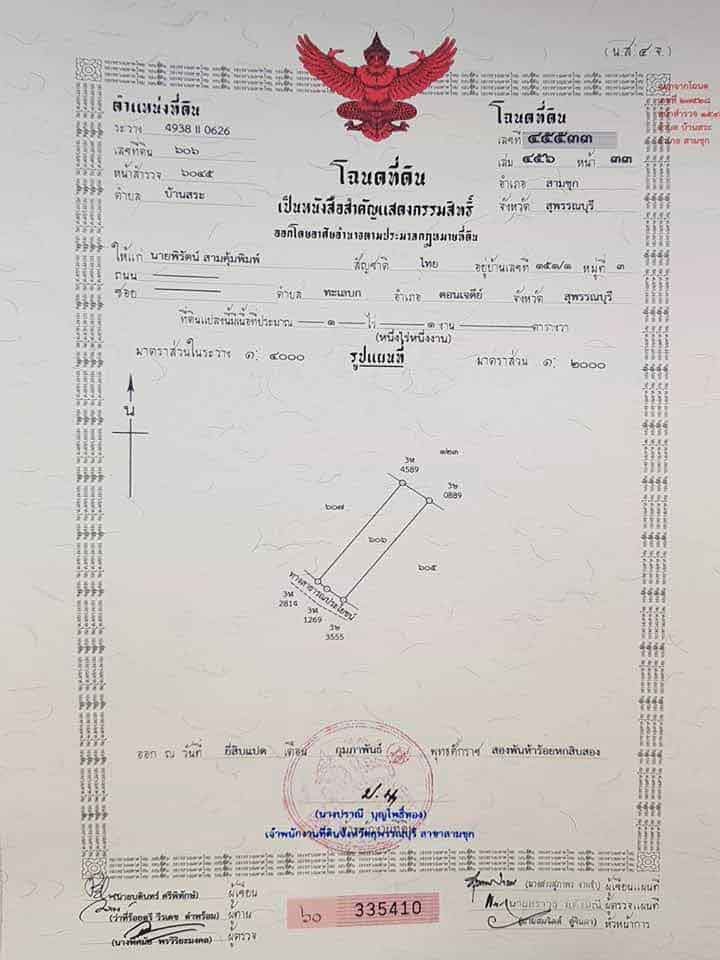 (น.ส.๔ จ.)
ตำแหน่งที่ดิน
ระวาง 4938 II 0626
เลขที่ดิน ๖๐๖
หน้าสำรวจ ๖๐๔๕
ตำบล บ้านสระ
โฉนดที่ดิน
เลขที่ ๔๕๕๓๓
เล่ม ๔๕๖ หน้า ๓๓
อำเภอ สามชุก
จังหวัด สุพรรณบุรี
โฉนดที่ดิน
เป็นหนังสือสำคัญแสดงกรรมสิทธิ์
ออกโดยอาศัยอำนาจตามประมวลกฎหมายที่ดิน
ให้แก่ นายพิรัตน์ สามคุ้มพิมพ์ สัญชาติ ไทย อยู่บ้านเลขที่ ๑๕๑/๑ หมู่ที่ ๓
ถนน
ซอย ตำบล ทะเลบก อำเภอ ดอนเจดีย์ จังหวัด สุพรรณบุรี
ที่ดินแปลงนี้มีเนื้อที่ประมาณ ๑ ไร่ ๑ งาน ตารางวา
(หนึ่งไร่หนึ่งงาน)
มาตราส่วนในระวาง ๑: ๔๐๐๐ รูปแผนที่ มาตราส่วน ๑: ๒๐๐๐
น
๑๒๓
3ฬ
4589
3ฃ
0889
๖๐๗
๖๐๖
๖๐๕
ทางสาธารณประโยชน์
1269
3555
ออก ณ วันที่ ยี่สิบแปด เดือน กุมภาพันธ์ พุทธศักราช สองพันห้าร้อยหกสิบสอง
(นางปราณี บุญโพธิ์ทอง)
เจ้าพนักงานที่ดินจังหวัดสุพรรณบุรี สาขาสามชุก
ผู้เขียน
(ว่าที่ร้อยตรี วีรเดช ดำพร้อม) ผู้ทาน
ผู้ตรวจ
๖๐ 335410
ผู้เขียนแผนที่
ผู้ตรวจแผนที่
หัวหน้าการ